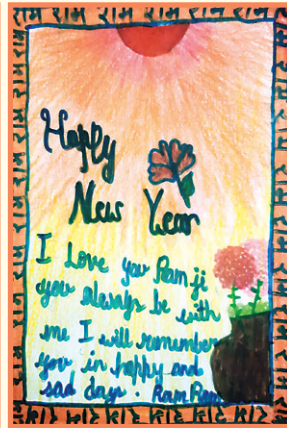 राम राम राम राम राम राम राम राम
Happy
New Year
I Love you Ram ji
you always be with
me I will remember
you in happy and
sad days. Ram Ram